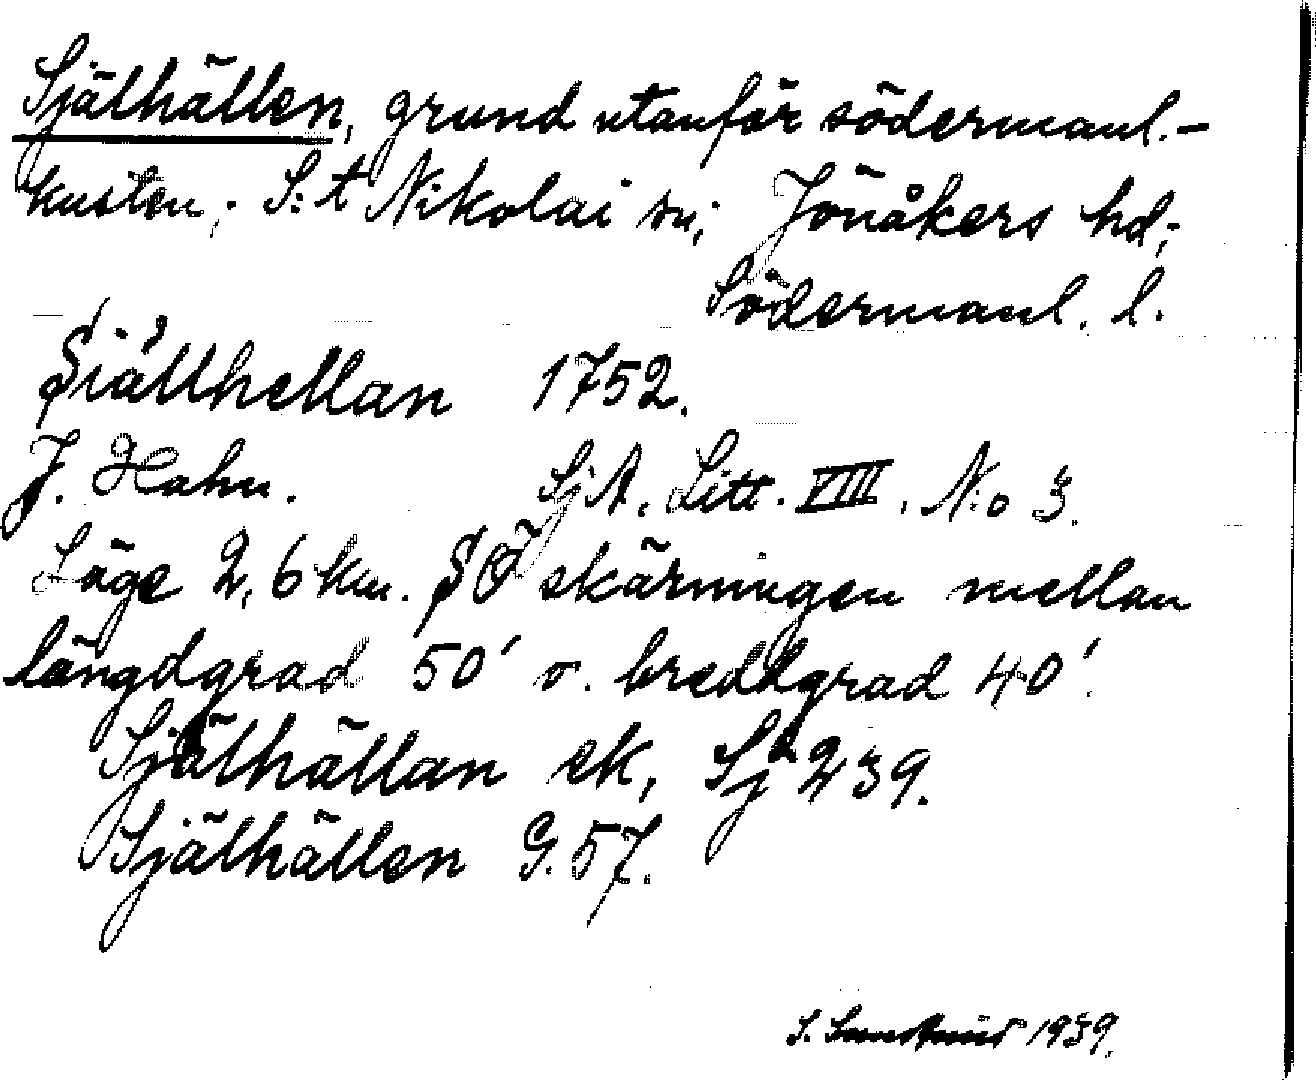 Själhällen, grund utanför södermanl.-
kusten; S:t Nikolai sn; Jönåkers hd;
Södermanl. l.
Siällhellan 1752.
J. Hahn. SjA. Litt. VIII. N:o 3.
Läge 2,6 km. SO skärningen mellan
längdgrad 50' o. breddgrad 40'.
Själhällan ek, Sj 239.
Själhällen G. 57.
S. 1939.